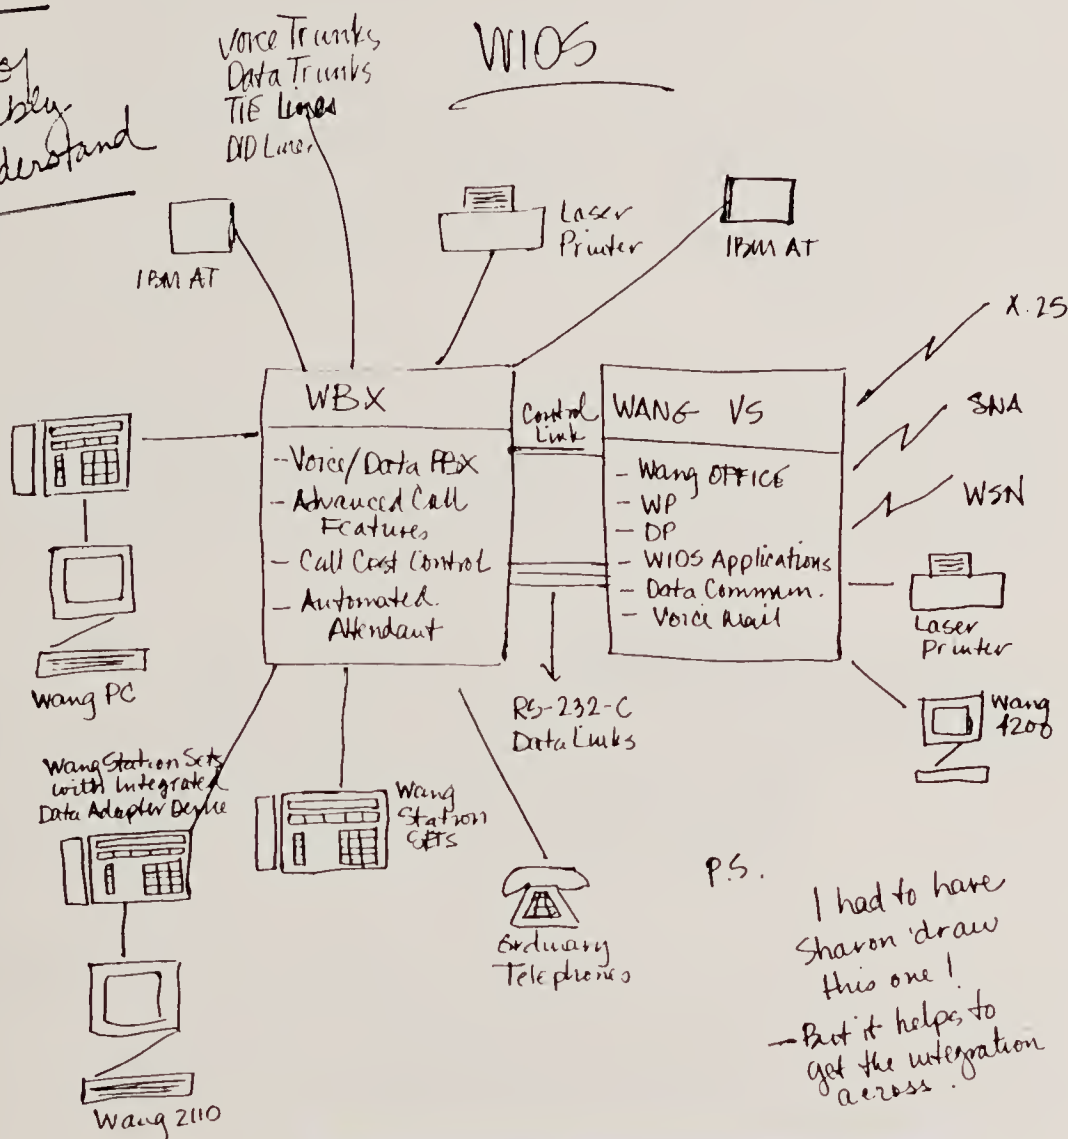 of
derstand
Voice Trunks
Data Trunks
TIE Lines
DID Lines
WIOS
IBM AT
Laser
Printer
IBM AT
X.25
SNA
WSN
WBX
- Voice/Data PBX
- Advanced Call
Features
- Call Cost Control
- Automated
Attendant
Control
Link
WANG VS
- Wang OFFICE
- WP
- DP
- WIOS Applications
- Data Commun.
- Voice Mail
RS-232-C
Data Links
Laser
Printer
Wang
4200
Wang PC
Wang Station Sets
with Integrated
Data Adapter Device
Wang
Station
SETS
Ordinary
Telephones
Wang 2110
P.S.
I had to have
Sharon draw
this one!
- But it helps to
get the integration
across.